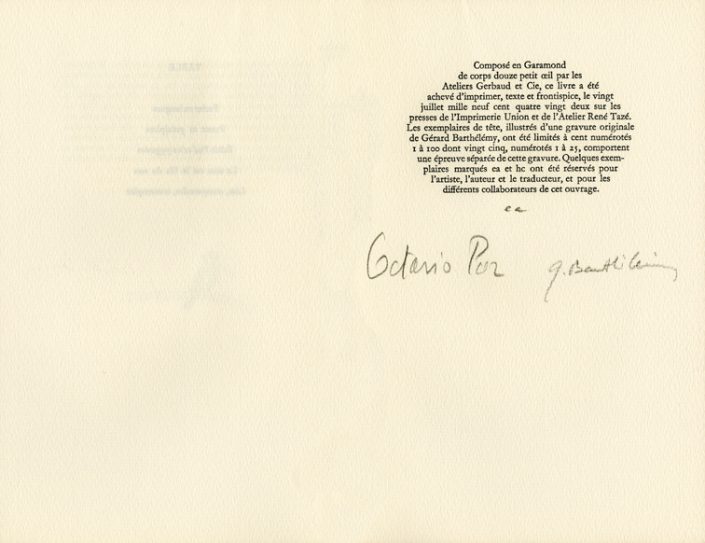 Composé en Garamond
de corps douze petit œil par les
Ateliers Gerbaud et Cie, ce livre a été
achevé d'imprimer, texte et frontispice, le vingt
juillet mille neuf cent quatre vingt deux sur les
presses de l'Imprimerie Union et de l'Atelier René Tazé.
Les exemplaires de tête, illustrés d'une gravure originale
de Gérard Barthélémy, ont été limités à cent numérotés
1 à 100 dont vingt cinq, numérotés 1 à 25, comportent
une épreuve séparée de cette gravure. Quelques exem-
plaires marqués ea et hc ont été réservés pour
l'artiste, l'auteur et le traducteur, et pour les
différents collaborateurs de cet ouvrage.
ea
Octavio Paz
G. Barthélémy